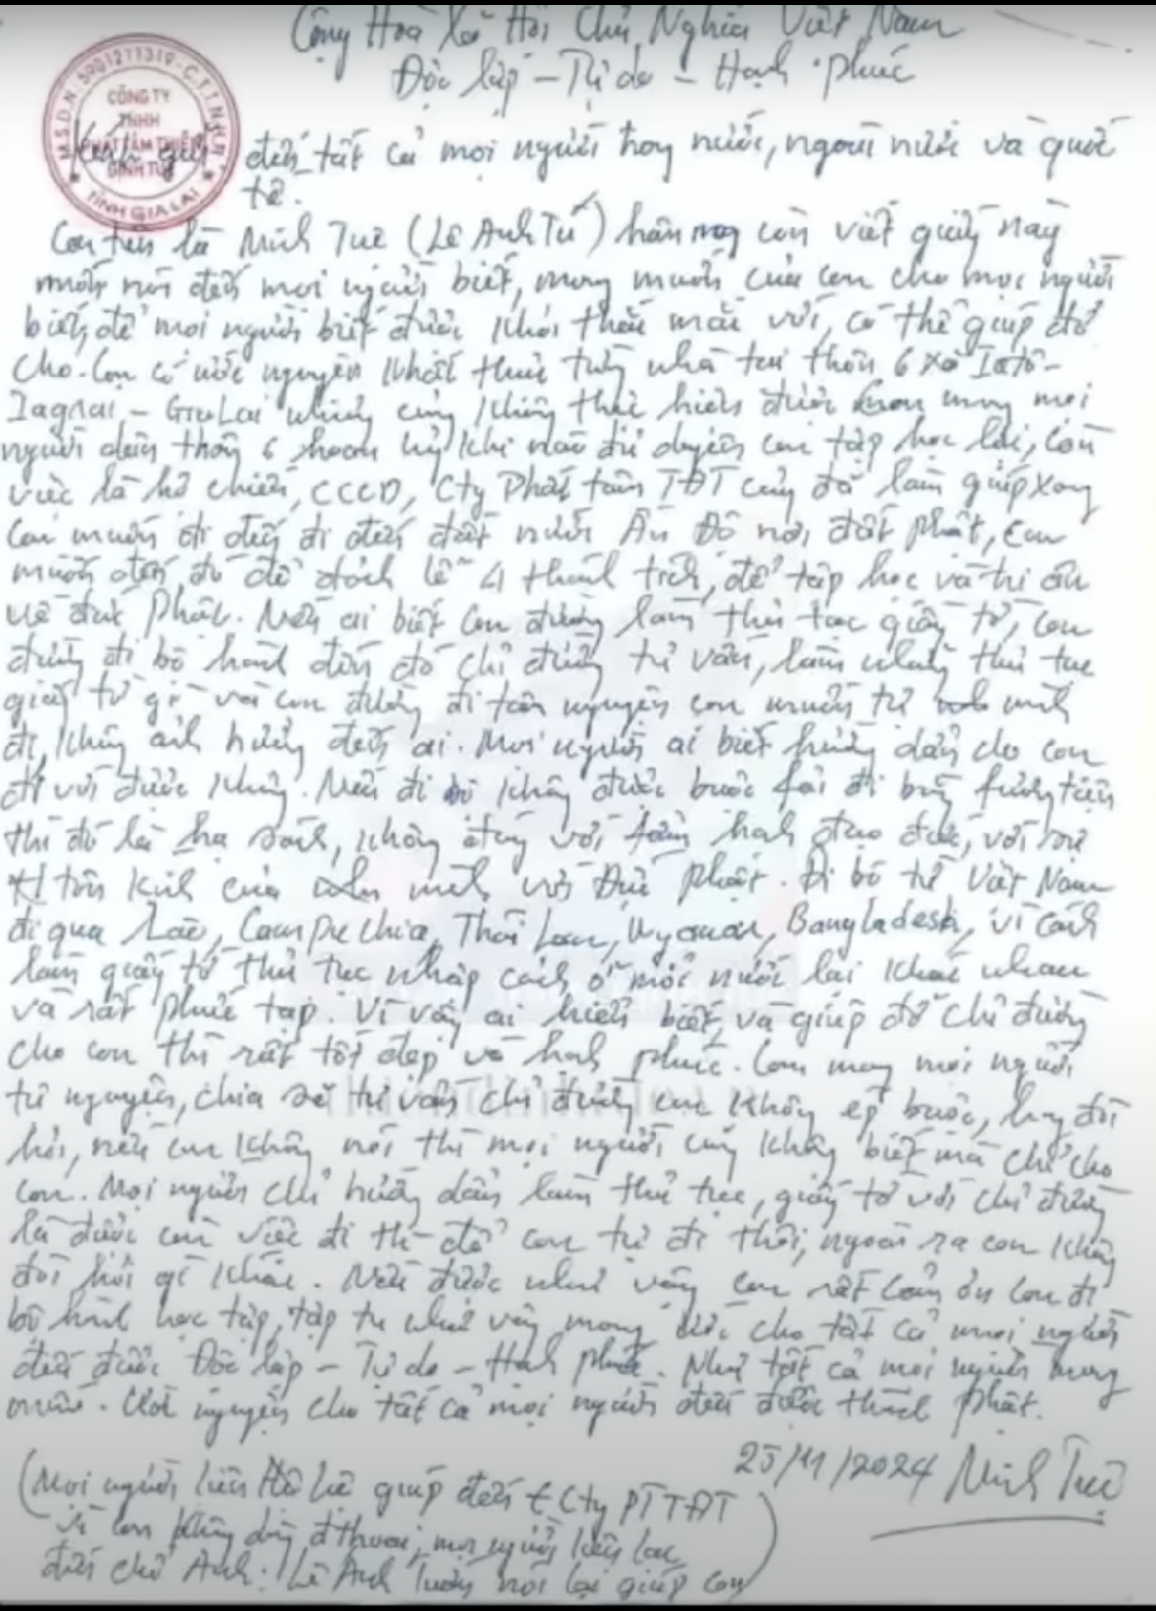 Cộng Hoà Xã Hội Chủ Nghĩa Việt Nam
Độc lập – Tự do – Hạnh phúc
M.S.D.N: 5901211319 - C.T.T.N.H.H
CÔNG TY
TNHH
PHÁT TÂM
TỈNH GIA LAI
Kính gửi đến tất cả mọi người trong nước, ngoài nước và quốc
tế.
Con tên là Minh Tuệ (Lê Anh Tú) hôm nay con viết giấy này
muốn nói đến mọi người biết, mong muốn của con cho mọi người
biết, để mọi người biết được khỏi thắc mắc với, có thể giúp đỡ
cho. Con có ước nguyện khất thực từng nhà tại thôn 6 xã Iatô -
Iagrai – GiaLai nhưng cũng không thực hiện được mong mọi
người dân thôn 6 hoan hỷ khi nào đủ duyên con tập học lại, còn
việc là hộ chiếu, CCCD, Cty Phát tâm TĐT cũng đã làm giúp xong
Con muốn đi đến đi đến đất nước Ấn Độ nơi đất phật, con
muốn đến đó để đảnh lễ 4 thánh tích, để tập học và tri ân
về đức phật. Nếu ai biết con đường làm thủ tục giấy tờ, con
đường đi bộ hành đến đó chỉ đường tư vấn, làm những thủ tục
giấy tờ gì và con đường đi tâm nguyện con muốn tự mình
đi, không ảnh hưởng đến ai. Mọi người ai biết hướng dẫn cho con
đi với được không. Nếu đi bộ không được buộc fải đi bằng fương tiện
thì đó là hạ sách, không đúng với fẩm hạnh đạo đức, với sự
tôn kính của mình với Đức phật. Đi bộ từ Việt Nam
đi qua Lào, Campuchia, Thái Lan, Myanmar, Bangladesh, vì cách
làm giấy tờ thủ tục nhập cảnh ở mỗi nước lại khác nhau
và rất phức tạp. Vì vậy ai hiểu biết, và giúp đỡ chỉ đường
cho con thì rất tốt đẹp và hạnh phúc. Con mong mọi người
tự nguyện, chia sẻ tư vấn chỉ đường con không ép buộc, hay đòi
hỏi, nếu con không nói thì mọi người cũng không biết mà chỉ cho
con. Mọi người chỉ hướng dẫn làm thủ tục, giấy tờ với chỉ đường
là được còn việc đi thì để con tự đi thôi, ngoài ra con không
đòi hỏi gì khác. Nếu được như vậy con rất cảm ơn con đi
bộ hành học tập, tập tu như vậy mong ước cho tất cả mọi người
đều được Độc lập – Tự do – Hạnh phúc. Như tất cả mọi người mong
muốn. Ước nguyện cho tất cả mọi người đều được thành phật.
25/11/2024 Minh Tuệ
(Mọi người liên hệ giúp đến Cty PTTĐT
Vì con không dùng đ thoại, mọi người liên lạc
đến chỗ Anh: Lê Anh nói lại giúp con)